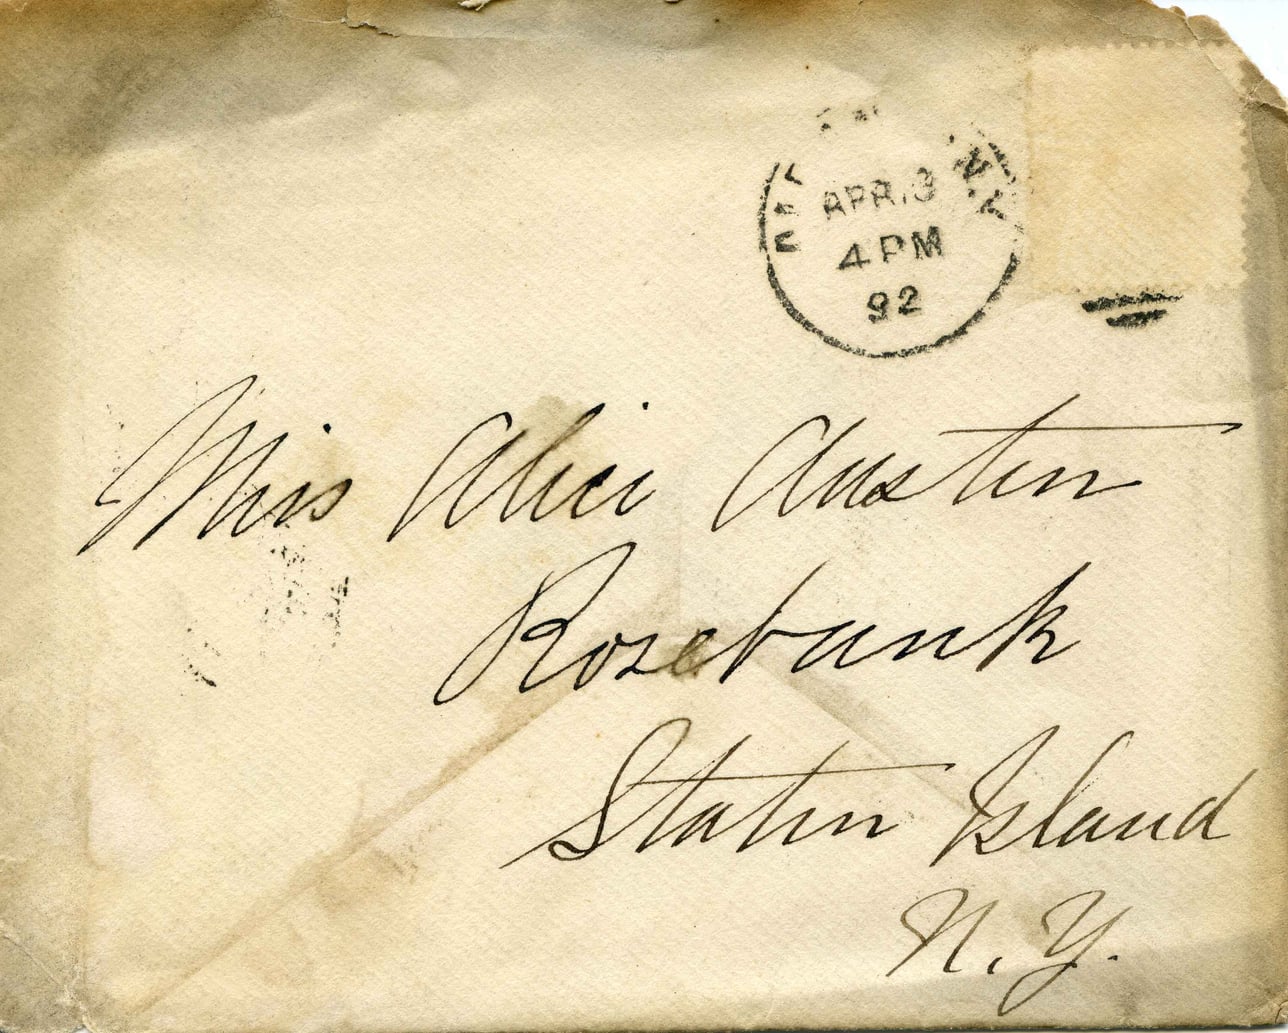 N.Y.
APR. 3
4 PM
92
Miss Alice Austen
Rosebank
Staten Island
N. Y.